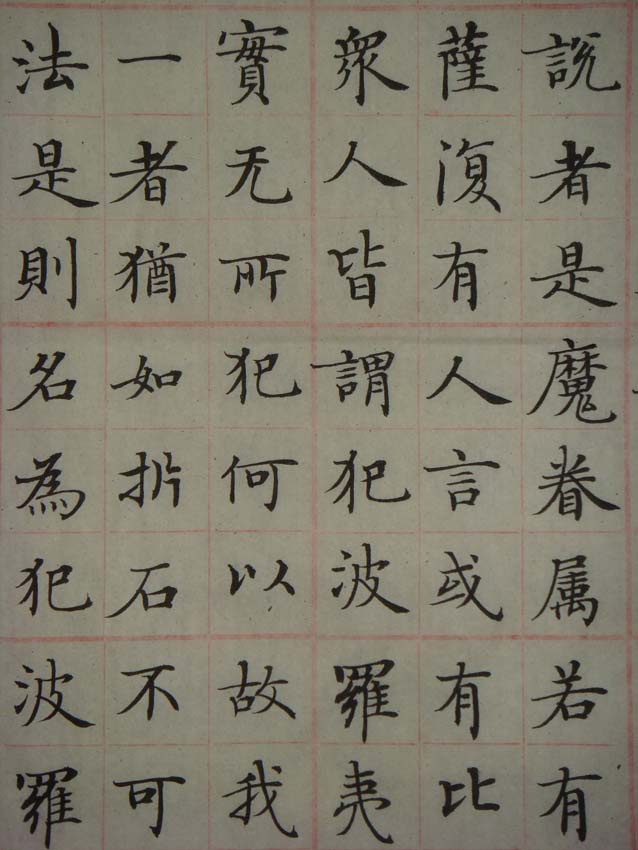 説者是魔眷属若有
薩復有人言或有比
衆人皆謂犯波羅夷
實无所犯何以故我
一者猶如折石不可
法是則名為犯波羅